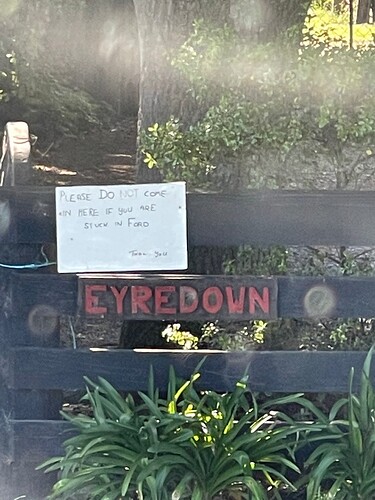 PLEASE DO NOT COME
IN HERE IF YOU ARE
STUCK IN FORD
THANK YOU
EYREDOWN